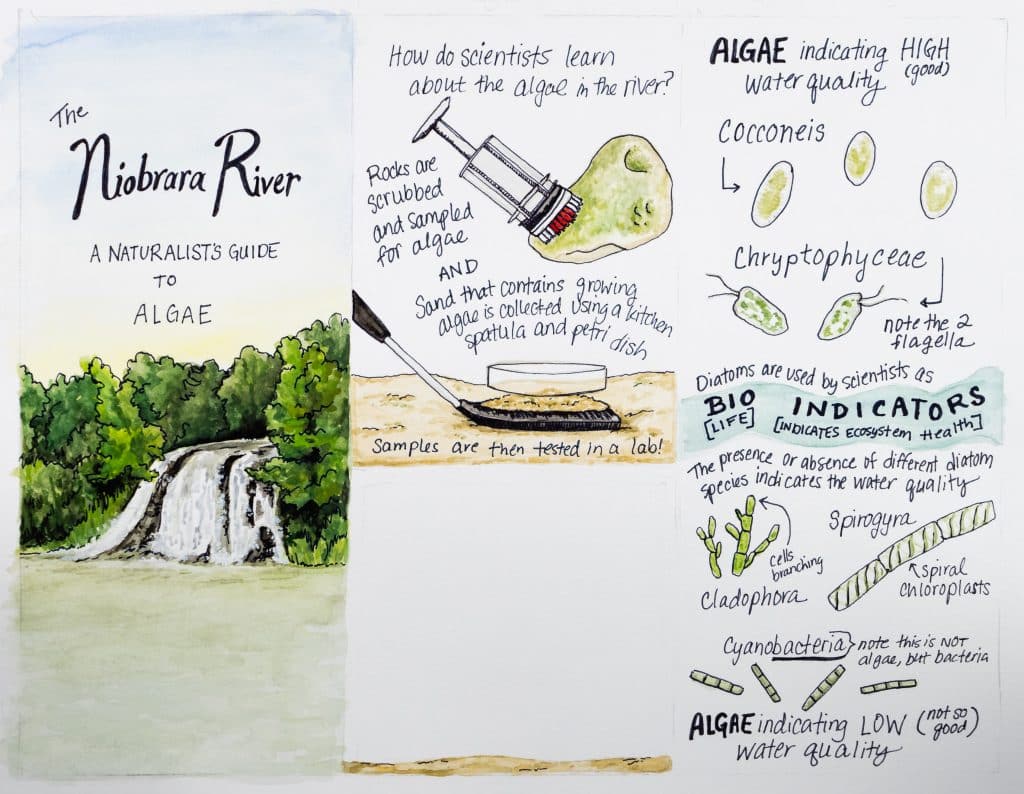 The
Niobrara River
A NATURALIST'S GUIDE
TO
ALGAE
How do scientists learn
about the algae in the river?
Rocks are
scrubbed
and sampled
for algae
AND
Sand that contains growing
algae is collected using a kitchen
spatula and petri dish
Samples are then tested in a lab!
ALGAE indicating HIGH
(good)
water quality
Cocconeis
Chryptophyceae
note the 2
flagella
Diatoms are used by scientists as
BIO INDICATORS
[LIFE] [INDICATES ECOSYSTEM HEALTH]
The presence or absence of different diatom
species indicates the water quality
cells
branching
Cladophora
Spirogyra
spiral
chloroplasts
Cyanobacteria
note this is NOT
algae, but bacteria
ALGAE indicating LOW (not so
good)
water quality